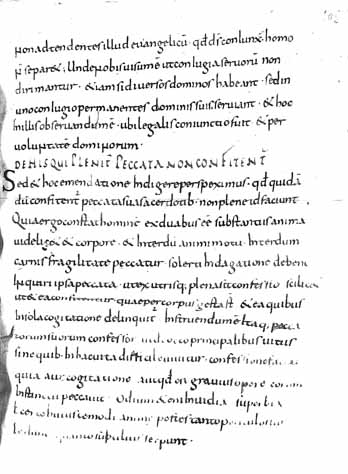 non adtendentes illud evangelicū · qđ dṡ conlunxẽ homo
n̄ separ& ; Unde nobis visum ē ut conlugia servorū non
dirimantur · & iam si diversos dominos habeant · sed in
uno conlugio permanentes dominis suis serviant · & hoc
in illis observandum ē · ubi legalis coniunctio fuit · & per
voluntatē dominorum ·
DE HIS QUI PLENIT̄ PECCATA NON CONFITENT̄
Sed & hoc emendatione Indigere perspeximus · qđ quidā
dū confitent̄ peccata sua sacerdotib · non plene id faciunt
Quia ergo constat hominē ex duabus eē substantiis anima
videlic& & corpore · & Interdū animi motu · Interdum
carnis fragilitate peccatur · solerti Indagatione debent
Inquiri ipsa peccata · ut ex utrisq; plena sit confessio scilic&
ut & ea confiteantur quae per corpus gesta st̄ & ea quibus
In sola cogitatione delinquit̄ · Instruendum ē Itaq; pecca
torum suorum confessor ut de octo principalibus vitiis
sine quib · In hac vita difficile vivitur · confessionē
quia aut cogitatione aut qđ ē gravius opere eorum
Instinctu peccavit · Odium & Invidia superbia
animi pestes tanto periculosius
serpunt ·